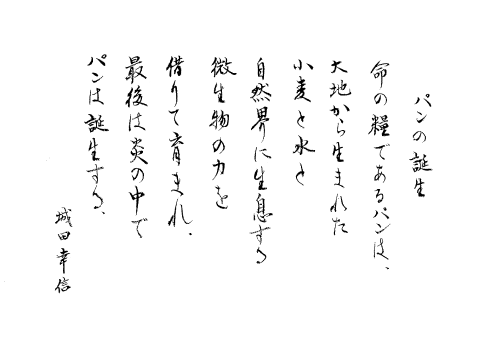 パンの誕生
命の糧であるパンは、
大地から生まれた
小麦と水と
自然界に生息する
微生物の力を
借りて育まれ、
最後は炎の中で
パンは誕生する、
城田幸信